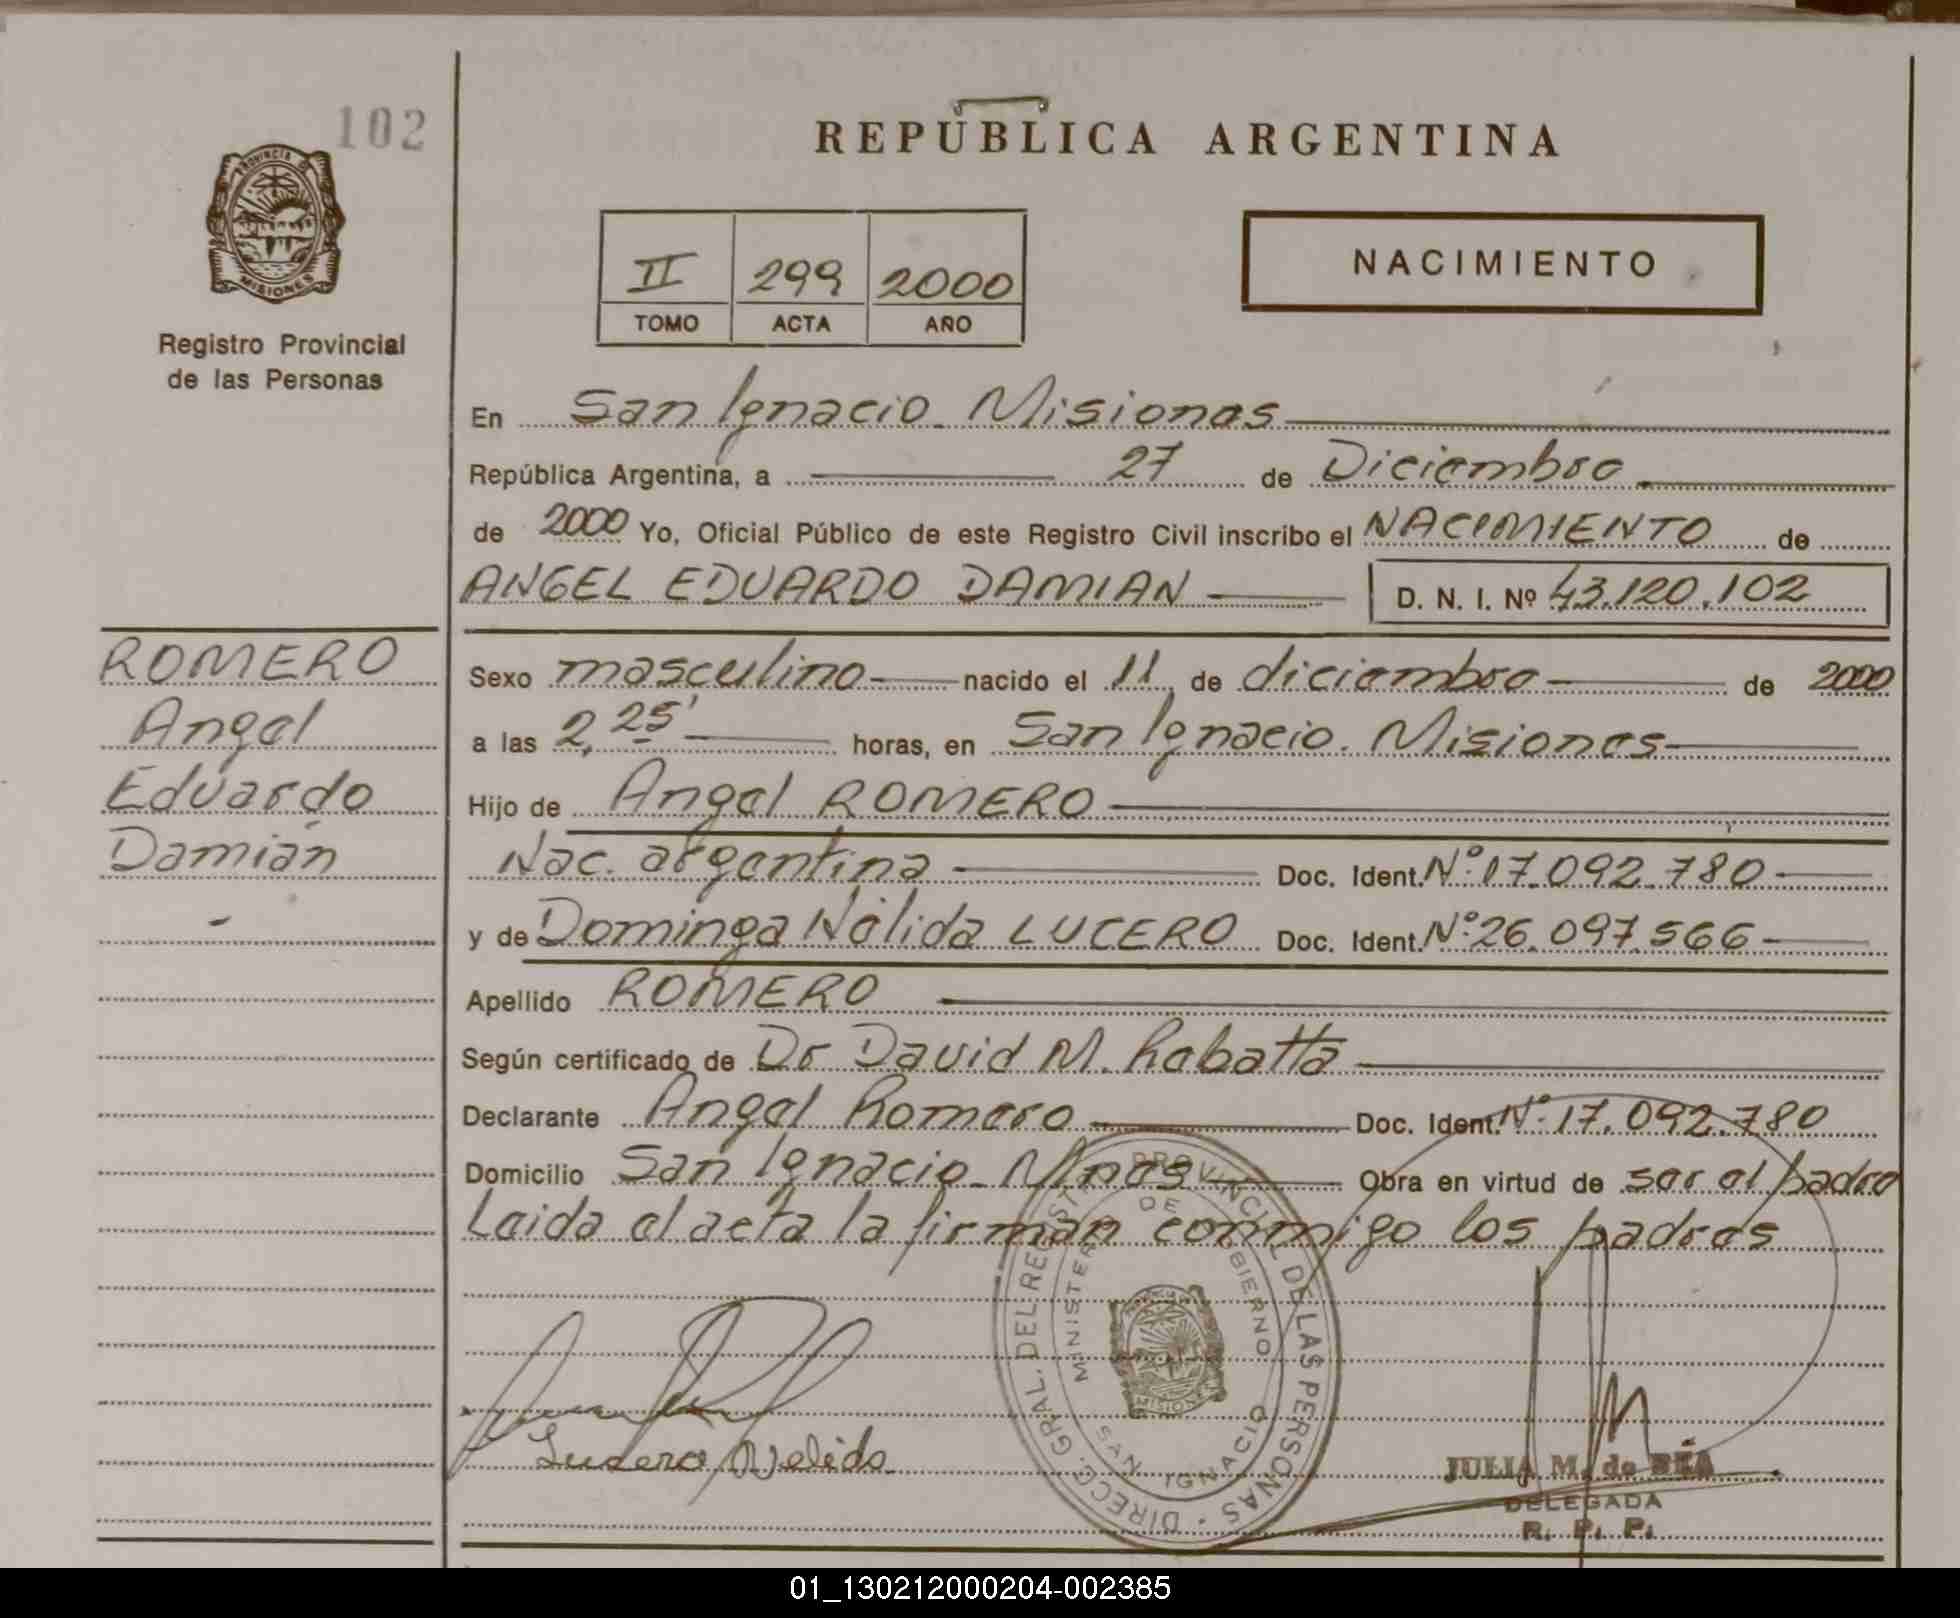 102
REPÚBLICA ARGENTINA
PROVINCIA DE MISIONES
Registro Provincial
de las Personas
II 299 2000
TOMO ACTA AÑO
NACIMIENTO
En San Ignacio - Misiones
República Argentina, a 27 de Diciembre
de 2000 Yo, Oficial Público de este Registro Civil inscribo el NACIMIENTO de
ANGEL EDUARDO DAMIAN D. N. I. Nº 43.120.102
ROMERO
Angel
Eduardo
Damián
Sexo masculino nacido el 11 de diciembre de 2000
a las 2,25' horas, en San Ignacio. Misiones
Hijo de Angel ROMERO
Nac. argentina Doc. Ident. Nº 17.092.780
y de Dominga Nélida LUCERO Doc. Ident. Nº 26.097.566
Apellido ROMERO
Según certificado de Dr David M. Rabatta
Declarante Angel Romero Doc. Ident. Nº 17.092.780
Domicilio San Ignacio - Mnes Obra en virtud de ser el padre
Leida el acta la firman conmigo los padres
DIRECC. GRAL. DEL REGIST. PROVINCIAL DE LAS PERSONAS
MINISTERIO DE GOBIERNO
SAN IGNACIO
MISIONES
Lucero Nelida
JULIA M. de BÉA
DELEGADA
R. P. P.
01_130212000204-002385